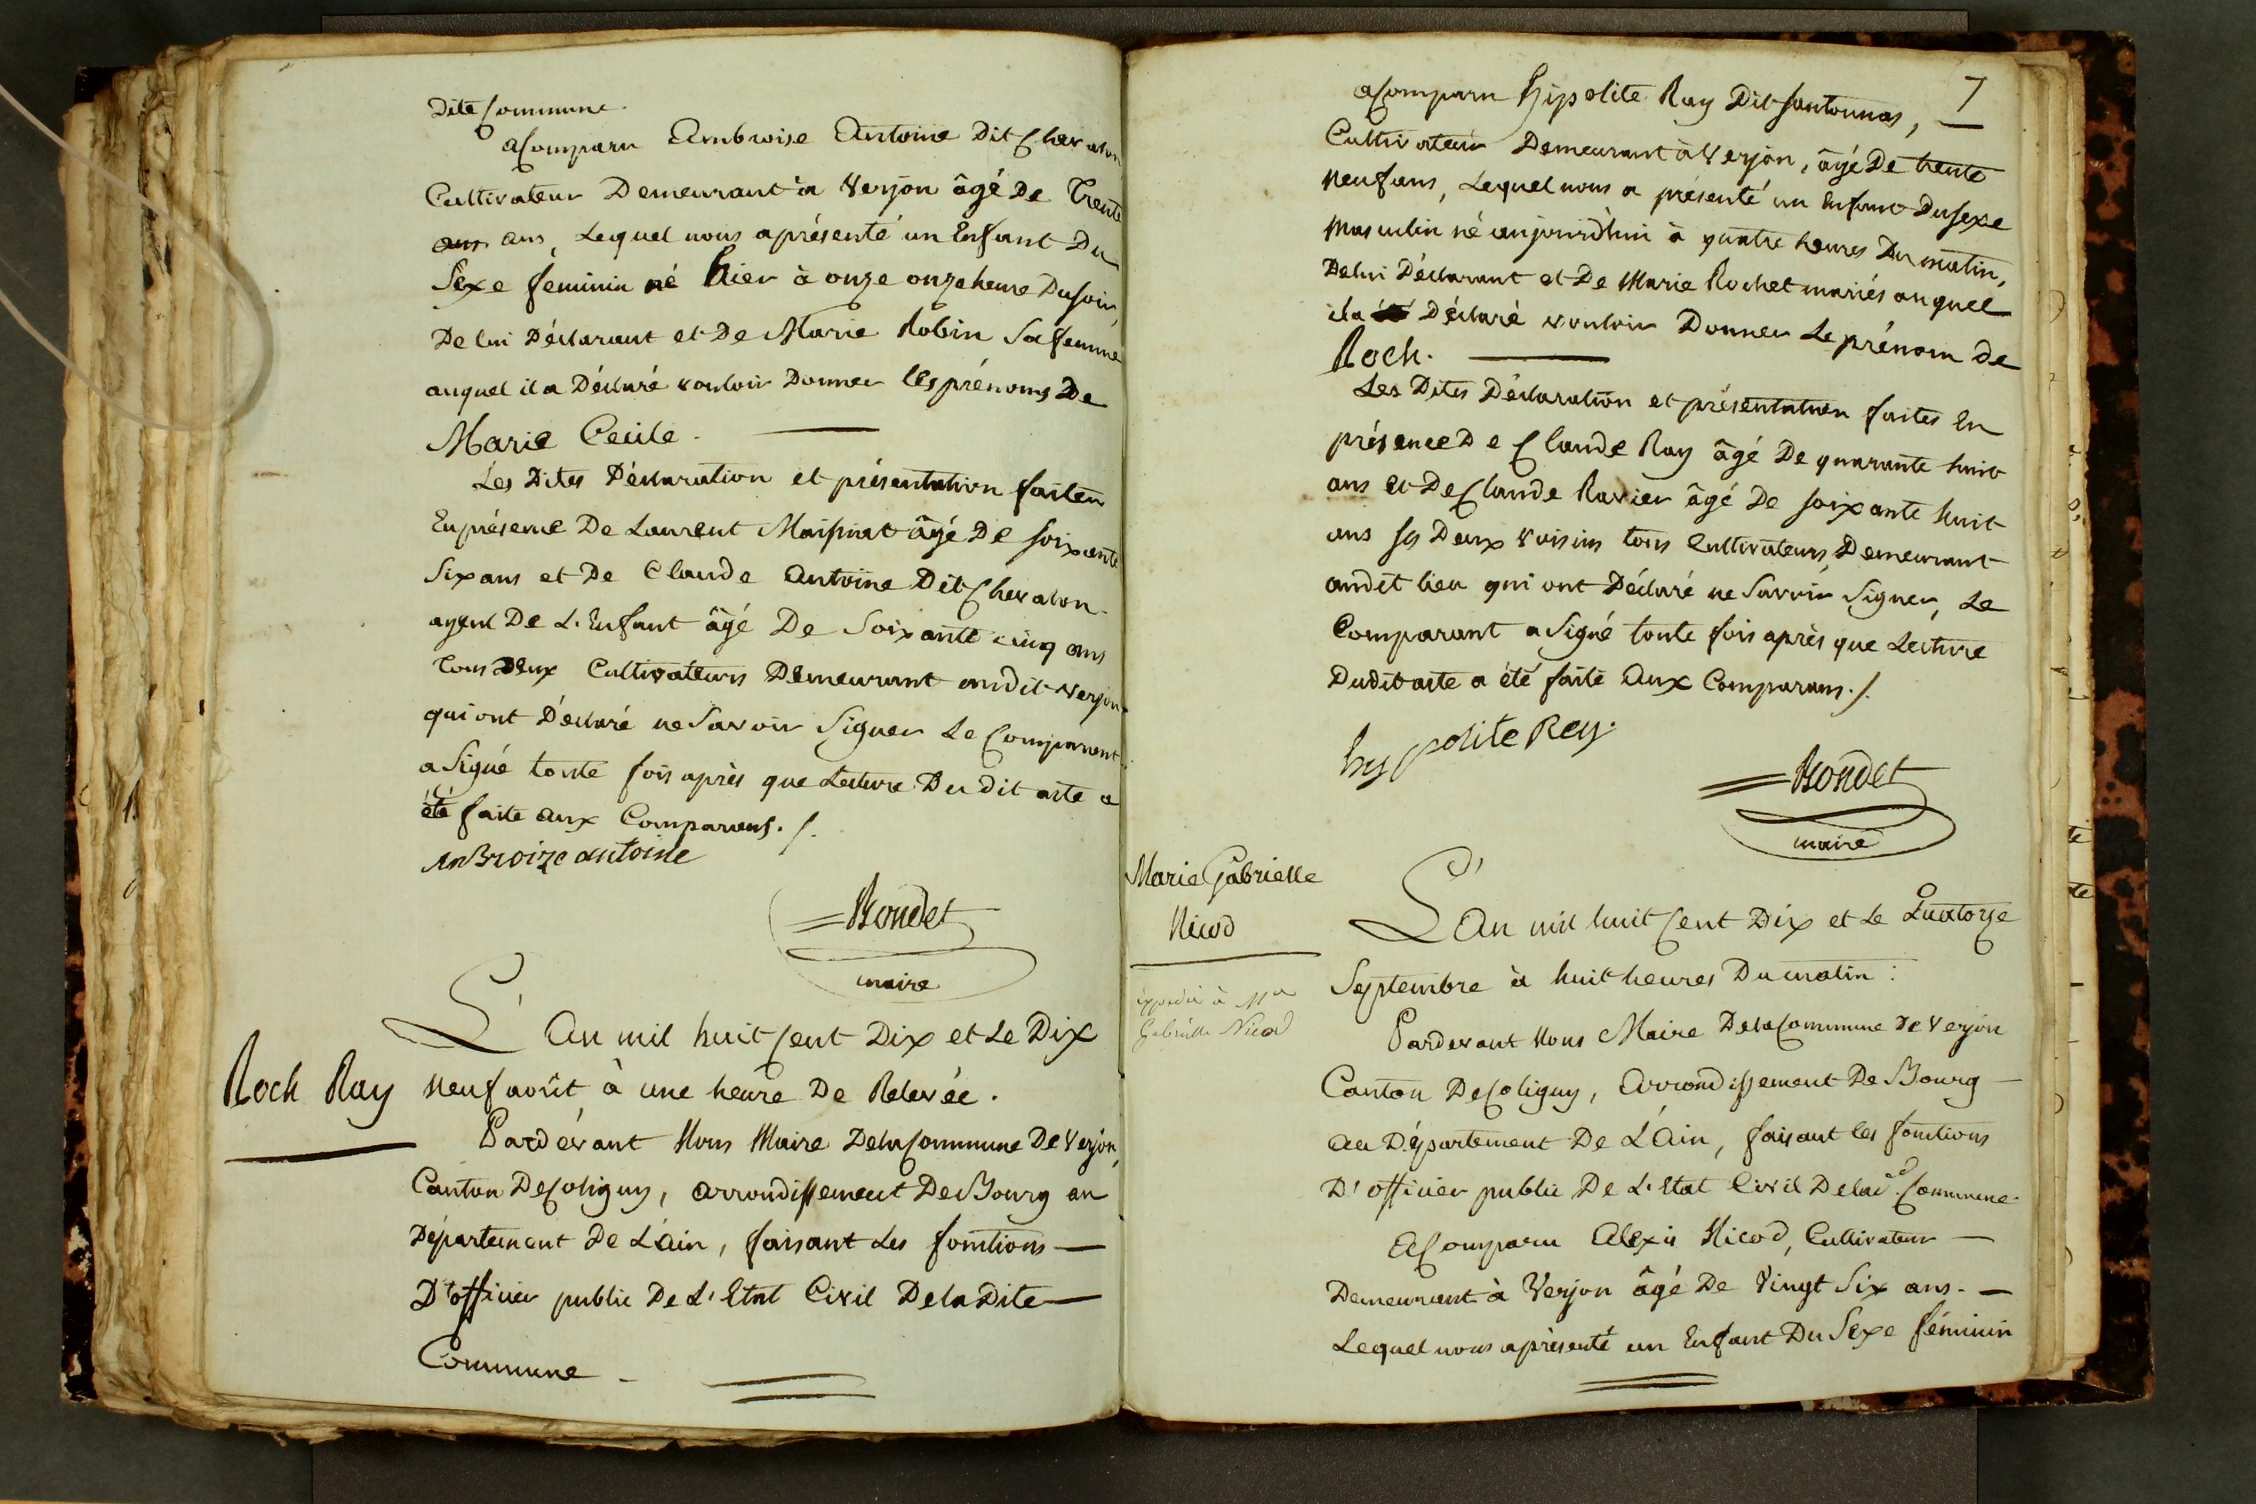 Dite Commune.
a Comparu Ambroise Antoine Dit Chevalon
Cultivateur Demeurant à Verjon âgé De Trente
ans ans, Lequel nous a présenté un Enfant Du
Sexe féminin né hier à onze onze heure Du soir,
De lui Déclarant et De Marie Robin Sa femme
auquel il a Déclaré vouloir Donner les prénoms De
Marie Cecile.
Les Dites Déclaration et présentation faites
En présence De Laurent âgé De soixante
Six ans et De Claude Antoine Dit Chevalon
ayeul De L'Enfant âgé De Soixante cinq ans
Tous Deux Cultivateurs Demeurant audit Verjon
qui ont Déclaré ne Savoir Signer Le Comparent
a Signé toute fois après que Lecture Du dit acte a
été faite aux Comparans./.
AmBroize antoine
Bondet
maire
Roch Ray
L'An mil huit Cent Dix et Le Dix
neuf août à une heure De Relevée.
Pardévant Nous Maire De la Commune De Verjon,
Canton De Coligny, arrondissement De Bourg au
Département De L'ain, faisant Les fonctions
D'officier public De L'Etat Civil De la Dite
Commune
7
a Comparu hipolite Ray Dit Santonnas,
Cultivateur Demeurant à Verjon, âgé De trente
neuf ans, Lequel nous a présenté un Enfant Du sexe
masculin né aujourd'hui à quatre heures Du matin,
De lui Déclarant et De Marie Rochet mariés auquel
il a Déclaré vouloir Donner Le prénom De
Roch.
Les Dites Déclaration et présentation faites En
présence De Claude Ray âgé De quarante huit
ans et De Claude Ravier âgé De soixante huit
ans ses Deux Voisins tous Cultivateurs, Demeurant
audit lieu qui ont Déclaré ne Savoir Signer, Le
Comparant a Signé toute fois après que Lecture
Dudit acte a été faite aux Comparans./.
hyppolite Rey
Bondet
maire
Marie Gabrielle
Nicod
expedié à Mie
Gabrielle Nicod
L'An mil huit Cent Dix et Le Quatorze
Septembre à huit heures Du matin:
Pardevant Nous Maire De la Commune De Verjon
Canton De Coligny, Arrondissement De Bourg
au Département De L'Ain, faisant les fonctions
D'officier public De L'Etat Civil De la de. Commune.
A Comparu Alexis Nicod, Cultivateur
Demeurant à Verjon âgé De Vingt Six ans.
Lequel nous a présenté un Enfant Du Sexe féminin